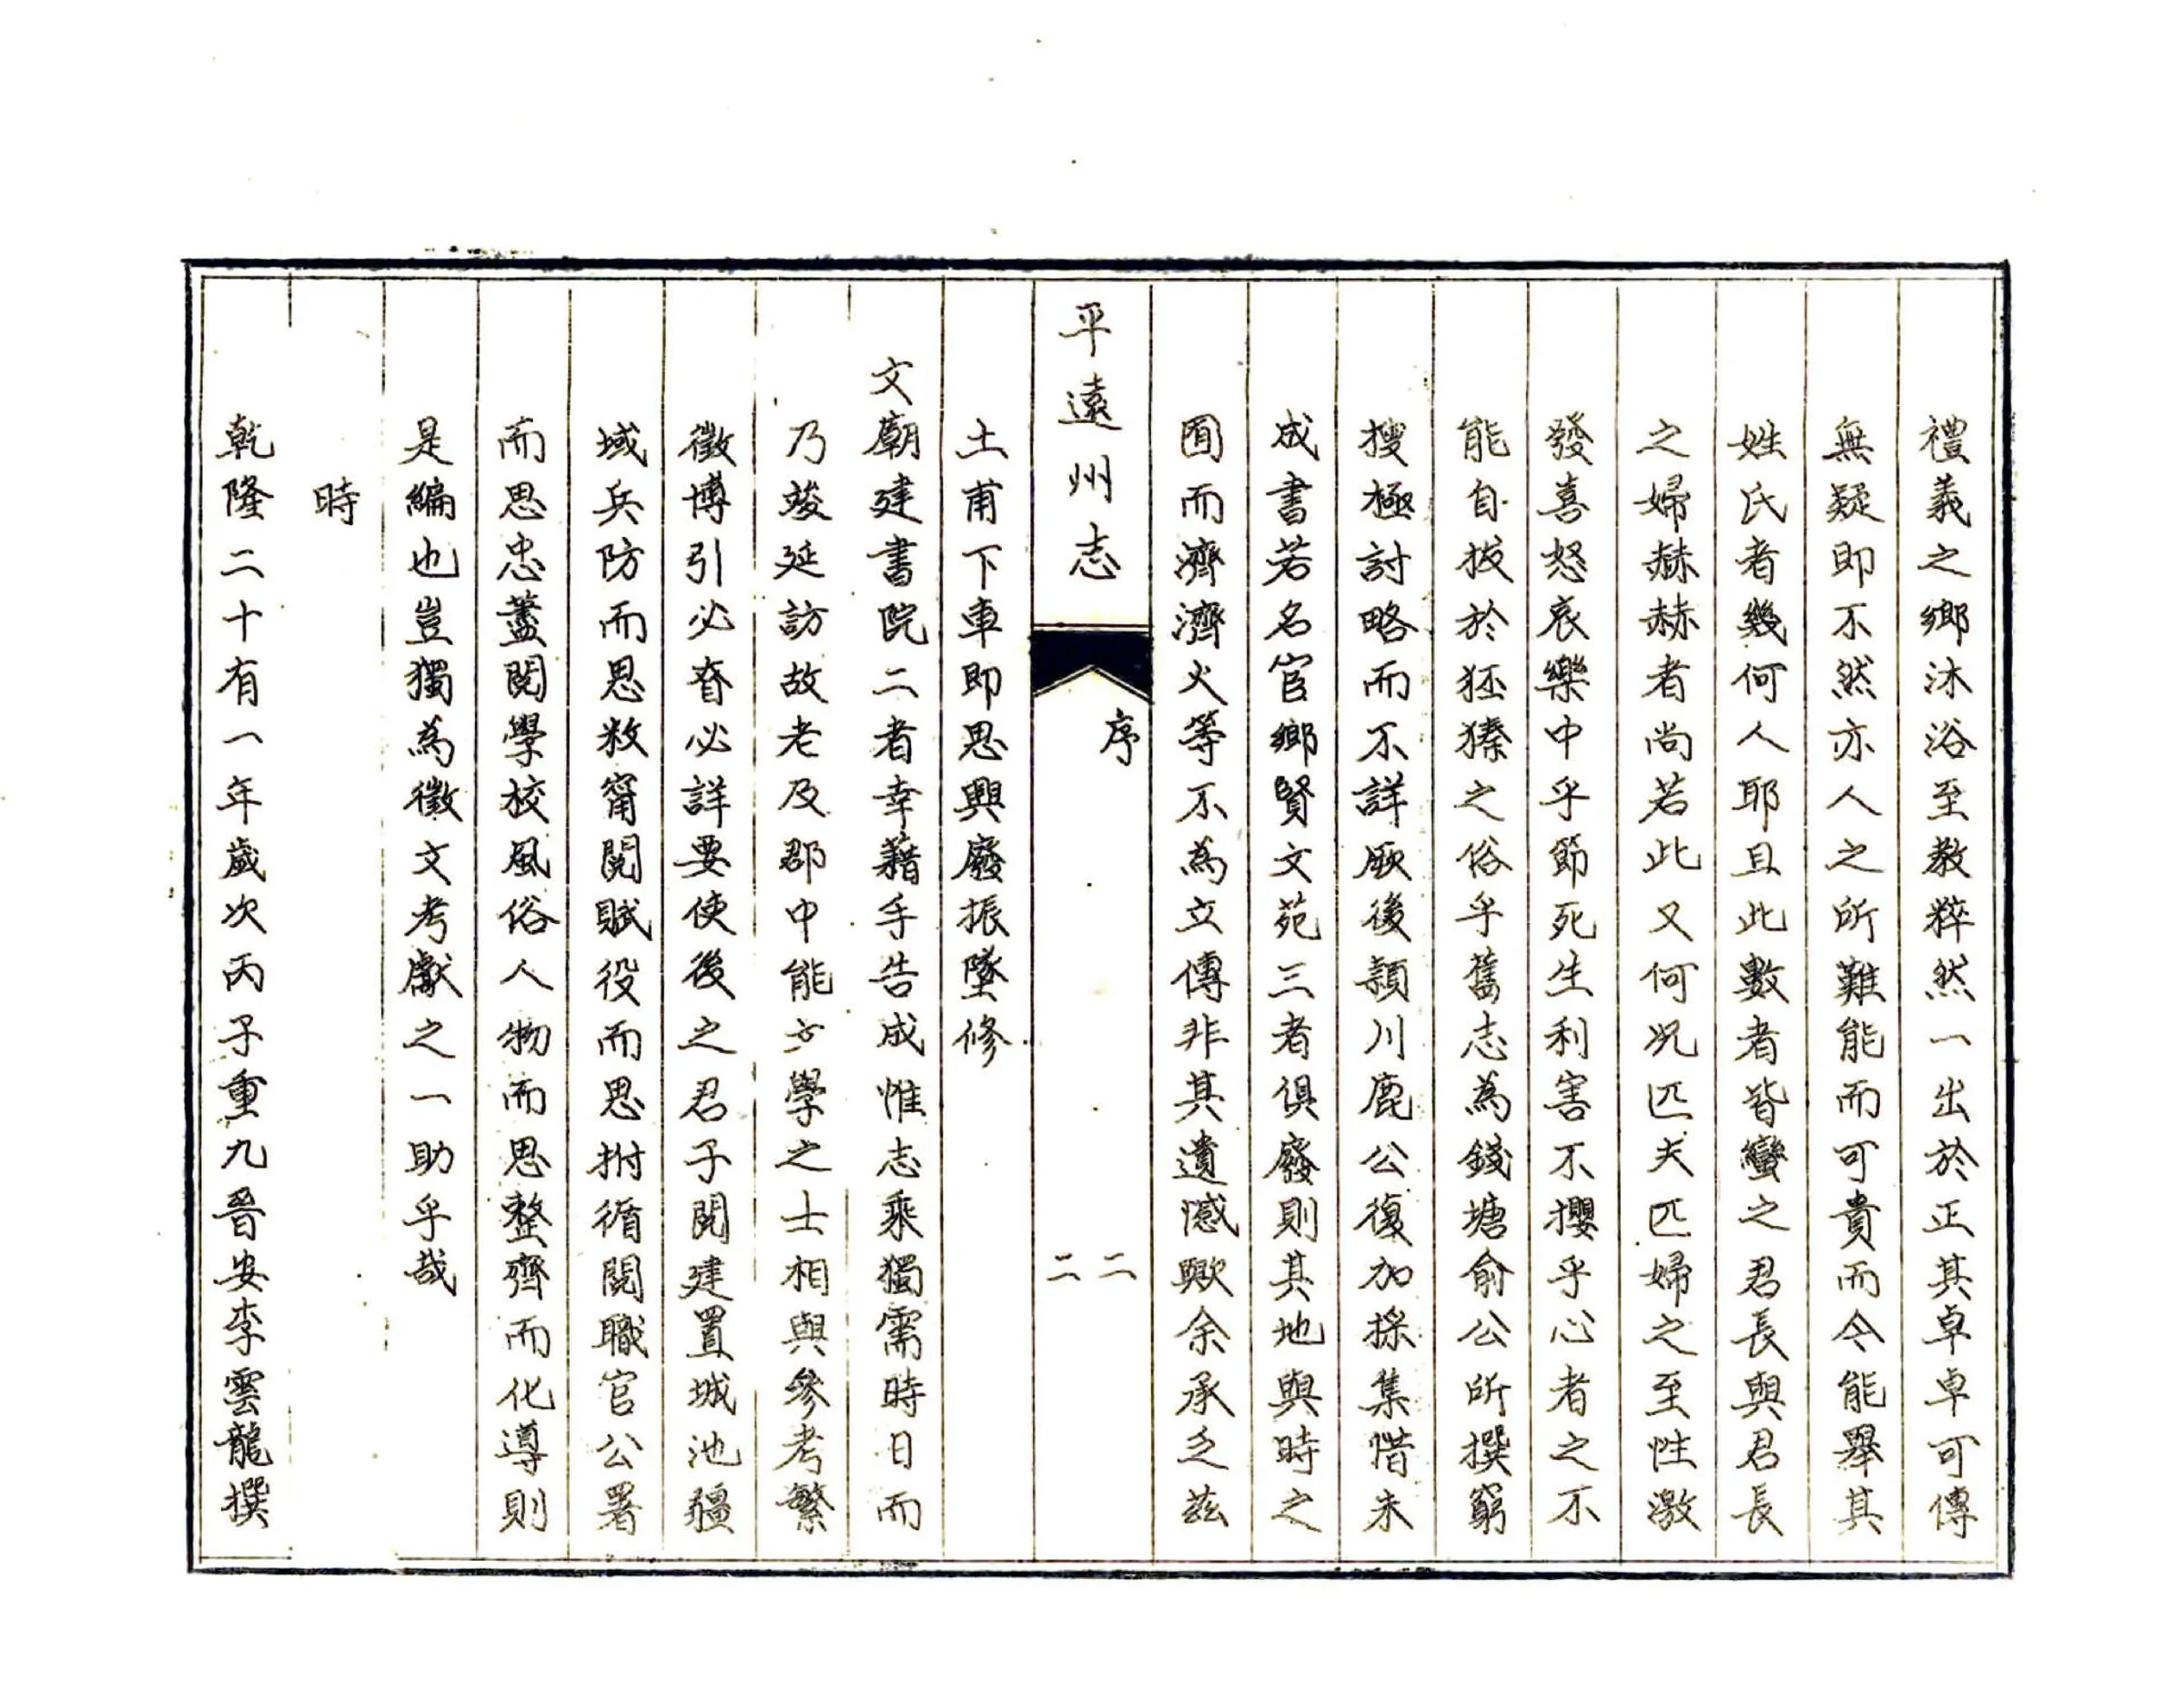 禮義之鄉沐浴至教粹然一出於正其卓卓可傳
無疑即不然亦人之所難能而可貴而今能舉其
姓氏者幾何人耶且此數者皆蠻之君長與君長
之婦赫赫者尚若此又何况匹夫匹婦之至性激
發喜怒哀樂中乎節死生利害不攖乎心者之不
能自拔於狉獉之俗乎舊志為錢塘俞公所撰窮
搜極討略而不詳厥後潁川鹿公復加採集惜未
成書若名宦鄉賢文苑三者俱廢則其地與時之
囿而濟濟火等不為立傳非其遺憾歟余承乏茲
平遠州志
序
二二
土甫下車即思興廢振墜修
文廟建書院二者幸藉手告成惟志乘獨需時日而
乃竣延訪故老及郡中能文學之士相與參考繁
徵博引必眘必詳要使後之君子閱建置城池疆
域兵防而思敉甯閱賦役而思拊循閱職官公署
而思忠藎閱學校風俗人物而思整齊而化導則
是編也豈獨為徵文考獻之一助乎哉
時
乾隆二十有一年歲次丙子重九晉安李雲龍撰